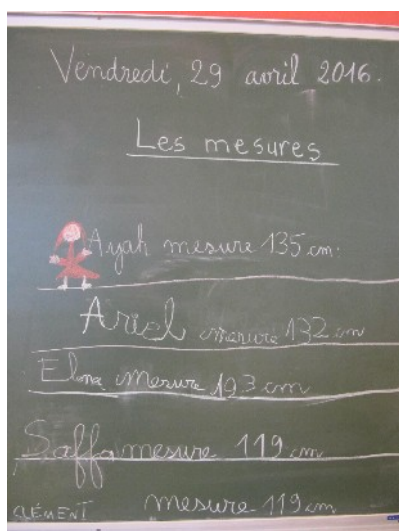 Vendredi, 29 avril 2016.
Les mesures
Ayah mesure 135 cm.
Ariel mesure 132 cm
Elona mesure 123 cm
Saffa mesure 119 cm
CLÉMENT mesure 119 cm